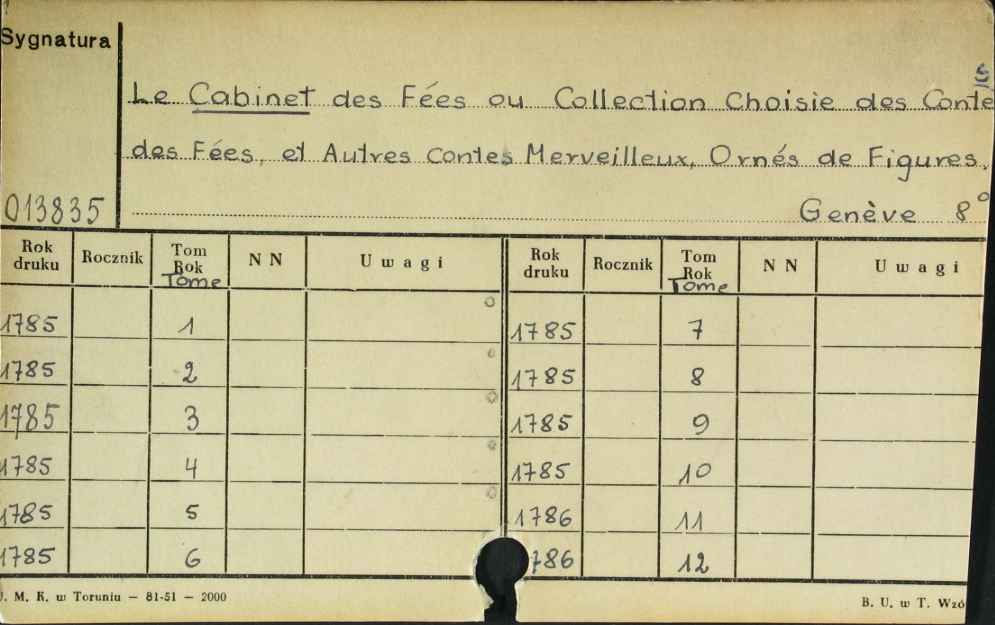 Sygnatura
Le Cabinet des Fées ou Collection Choisie des Contes
des Fées, et Autres Contes Merveilleux, Ornés de Figures.
013835 Genève 8°
Rok druku Rocznik Tom Rok Tome N N Uwagi Rok druku Rocznik Tom Rok Tome N N Uwagi
1785 1 1785 7
1785 2 1785 8
1785 3 1785 9
1785 4 1785 10
1785 5 1786 11
1785 6 786 12
. M. K. w Toruniu — 81-51 — 2000 B. U. w T. Wzó